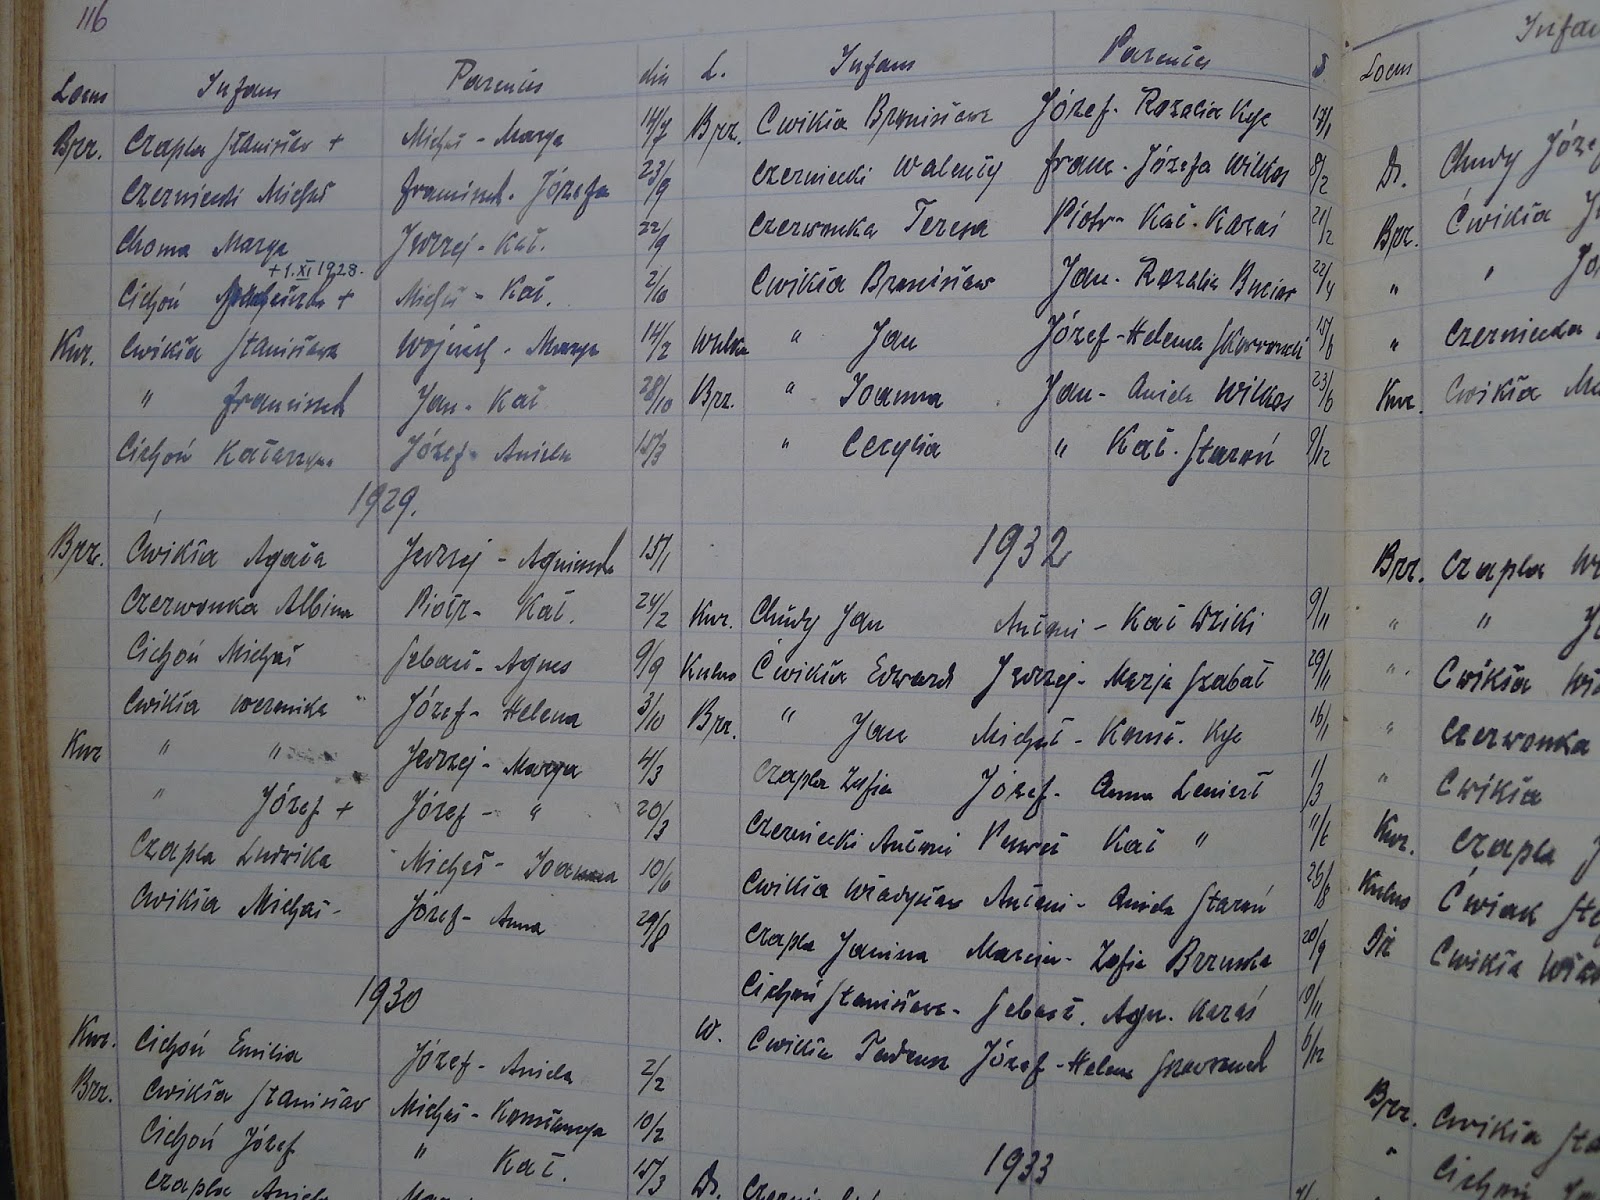 116
Locus Infans Parentes die
Brz. Czapla Stanisław + Michał - Marya 14/7
Czerniecki Michał Franciszek - Józefa 23/9
Choma Marya Jędrzej - Kat. 22/9
+ 1. XI 1928.
Cichoń + Michał - Kat. 2/10
Kwr. Ćwikła Stanisława Wojciech - Marya 14/2
" Franciszek Jan - Kat 28/10
Cichoń Katarzyna Józef - Aniela 15/3
1929.
Brz. Ćwikła Agata Jędrzej - Agnieszka 15/1
Czerwonka Albina Piotr - Kat. 24/2
Cichoń Michał Sebast - Agnes 9/9
Ćwikła Weronika Józef - Helena 3/10
Kwr " " Jędrzej - Marya 4/3
" Józef + Józef - " 20/3
Czapla Ludwika Michał - Joanna 10/6
Ćwikła Michał - Józef - Anna 29/8
1930
Kwr. Cichoń Emilia Józef - Aniela 2/2
Brz. Ćwikła Stanisław Michał - Konstancya 10/2
Cichoń Józef " Kat. 15/3
Czapla Aniela
L. Infans Parentes
Brz. Ćwikła Bronisława Józef - Rozalia Kyc
Czerniecki Walenty Franc. - Józefa Wilkos 8/2
Czerwonka Teresa Piotr - Kat. Karaś 21/2
Ćwikła Bronisław Jan - Rozalia 22/4
Wulka " Jan Józef - Helena 15/6
Brz. " Joanna Jan - Aniela Wilkos 23/6
" Cecylia " Kat. Staroń 9/12
1932
Kwr. Chudy Jan Antoni - Kat 9/11
Kulno Ćwikła Edward Jędrzej - Marja Szabat 29/11
Brz. " Jan Michał - Konst. Kyc 16/1
Czapla Zofia Józef - Anna 1/3
Czerniecki Antoni Paweł Kat "
Ćwikła Władysław Antoni - Aniela Staroń 26/8
Czapla Janina Marcin - Zofia 20/9
Cichoń Stanisława - Sebast. Agn. Karaś
W. Ćwikła Tadeusz Józef - Helena 6/12
1933
Ds.
Locus Infans
Ds. Chudy Józef
Brz. Ćwikła
"
" Czerniecka
Kwr. Ćwikła
Brz. Czapla
" "
" Ćwikła
" Czerwonka
" Ćwikła
Kwr. Czapla
Kulno Ćwiak
Ćwikła
Brz. Ćwikła
" Cichoń